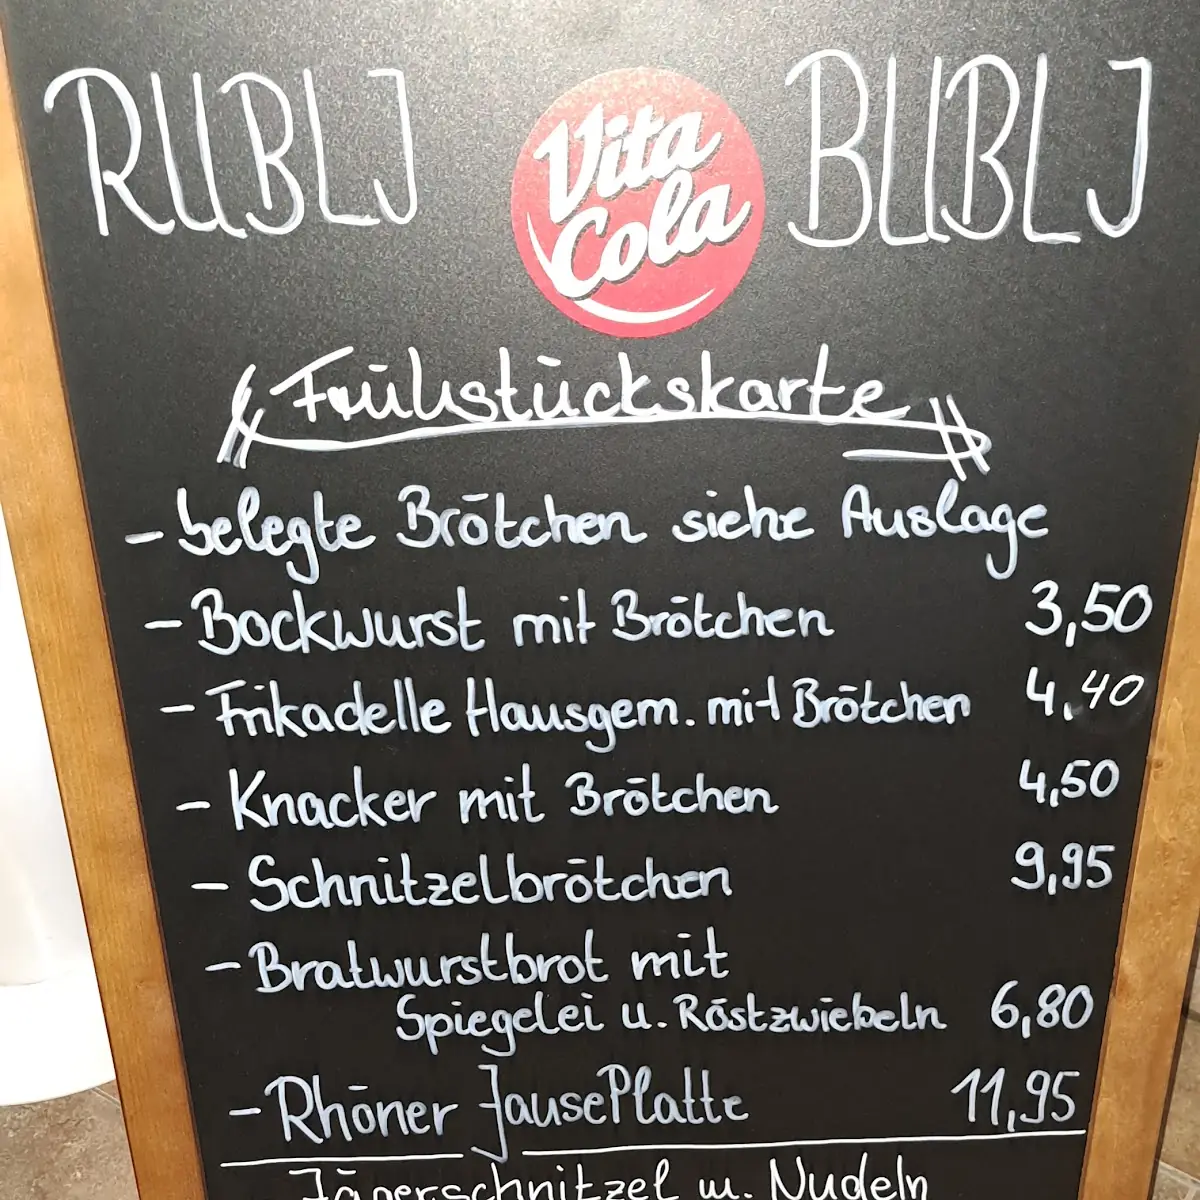 RUBLJ Vita Cola BUBLJ
Frühstückskarte
- belegte Brötchen siehe Auslage
- Bockwurst mit Brötchen 3,50
- Frikadelle Hausgem. mit Brötchen 4,40
- Knacker mit Brötchen 4,50
- Schnitzelbrötchen 9,95
- Bratwurstbrot mit
Spiegelei u. Röstzwiebeln 6,80
- Rhöner JausePlatte 11,95
Jägerschnitzel u. Nudeln